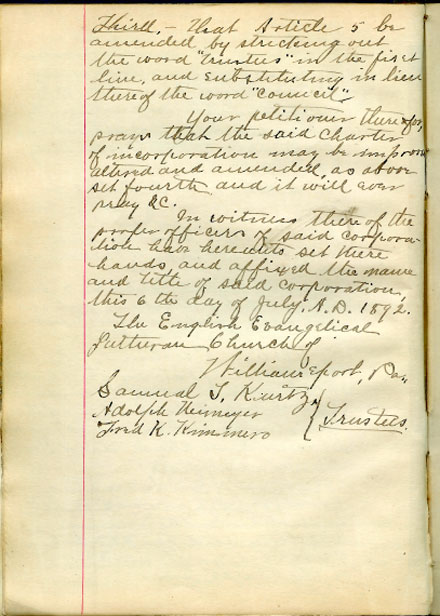 Third, - that Article 5 be
amended by stricking out
the word "trustees" in the first
line, and substituting in lieu
thereof the word "council"
Your petitioner therefor,
prays that the said Charter
of incorporation may be improved
altered and amended, as above
set fourth and it will ever
pray &C.
In witness there of the
proper officers of said corpora-
tion have hereunto set there
hands, and affixed the name
and title of said corporation,
this 6 the day of July, A.D. 1892.
The English Evangelical
Lutheran Church of
Williamsport, Pa.
Samuel T. Kurtz
Adolph Niemeyer
Fred K. Kimmero
Trustees.